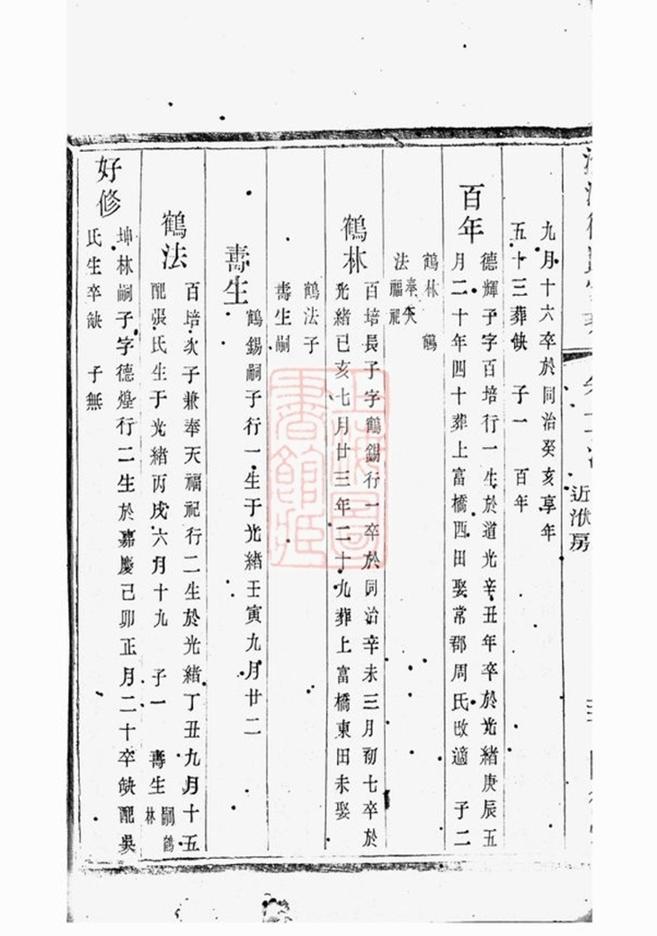 九月十六卒於同治癸亥享年
五十三葬缺 子一 百年
百年
德輝子字百培行一生於道光辛丑年卒於光緒庚辰五
月二十年四十葬上富橋西田娶常郡周氏改適 子二
鶴林 鶴
法 奉天
福祀
鶴林
百培長子字鶴錫行一卒於同治辛未三月初七卒於
光緒己亥七月廿三年二十九葬上富橋東田未娶
鶴法子
壽生嗣
壽生
鶴錫嗣子行一生于光緒壬寅九月廿二
鶴法
百培次子兼奉天福祀行二生於光緒丁丑九月十五
配張氏生于光緒丙戌六月十九 子一 壽生 嗣鶴
林
好修
坤林嗣子字德煌行二生於嘉慶己卯正月二十卒缺配吳
氏生卒缺 子無
近洑房
上海圖書館藏